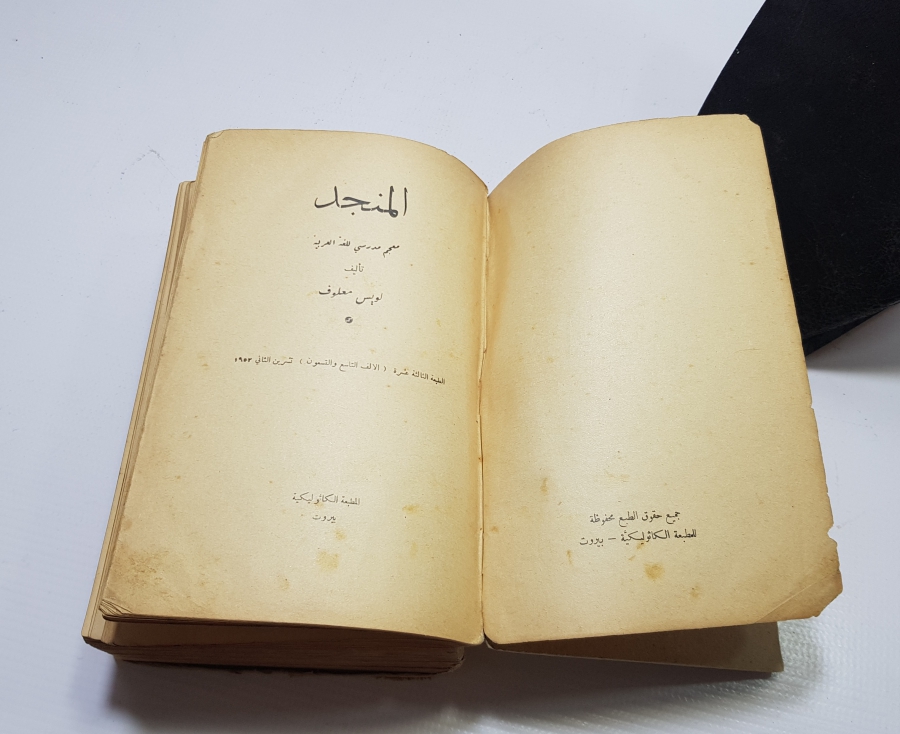 جميع حقوق الطبع محفوظة
للمطبعة الكاثوليكية – بيروت
المنجد
معجم مدرسي للغة العربية
تأليف
لويس معلوف
الطبعة الثالثة عشرة ( الالف التاسع والتسعون ) تشرين الثاني ١٩٥٢
المطبعة الكاثوليكية
بيروت